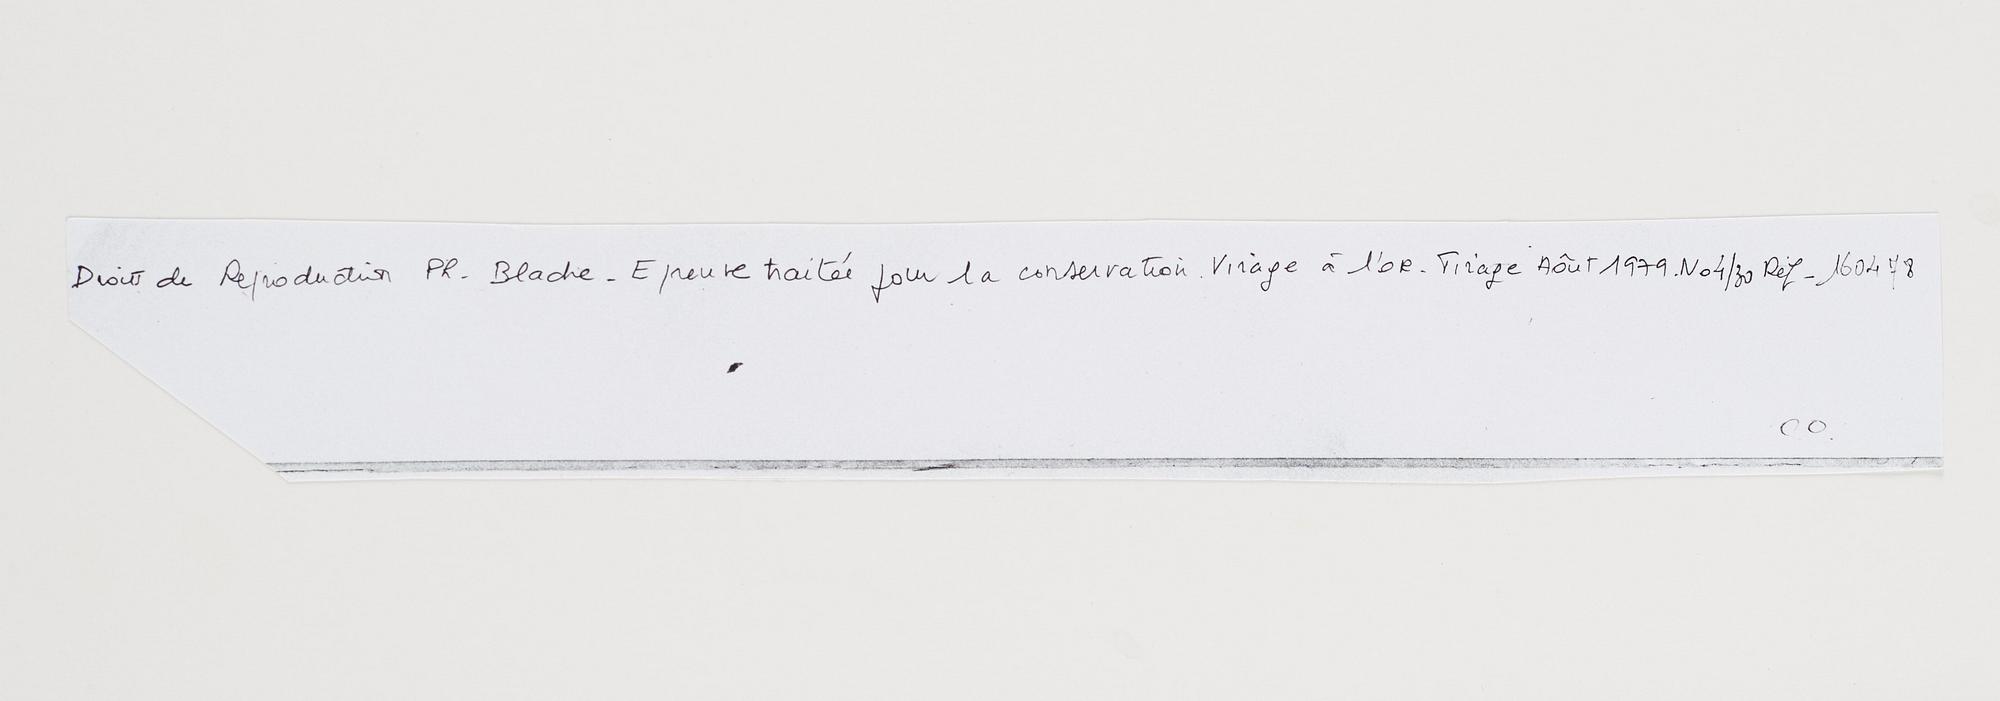 Droit de Reproduction PR. Blache - Epreuve traitée pour la conservation. Virage à l'OR. Tirage Août 1979. No4/30 Réf - 160478
CO.